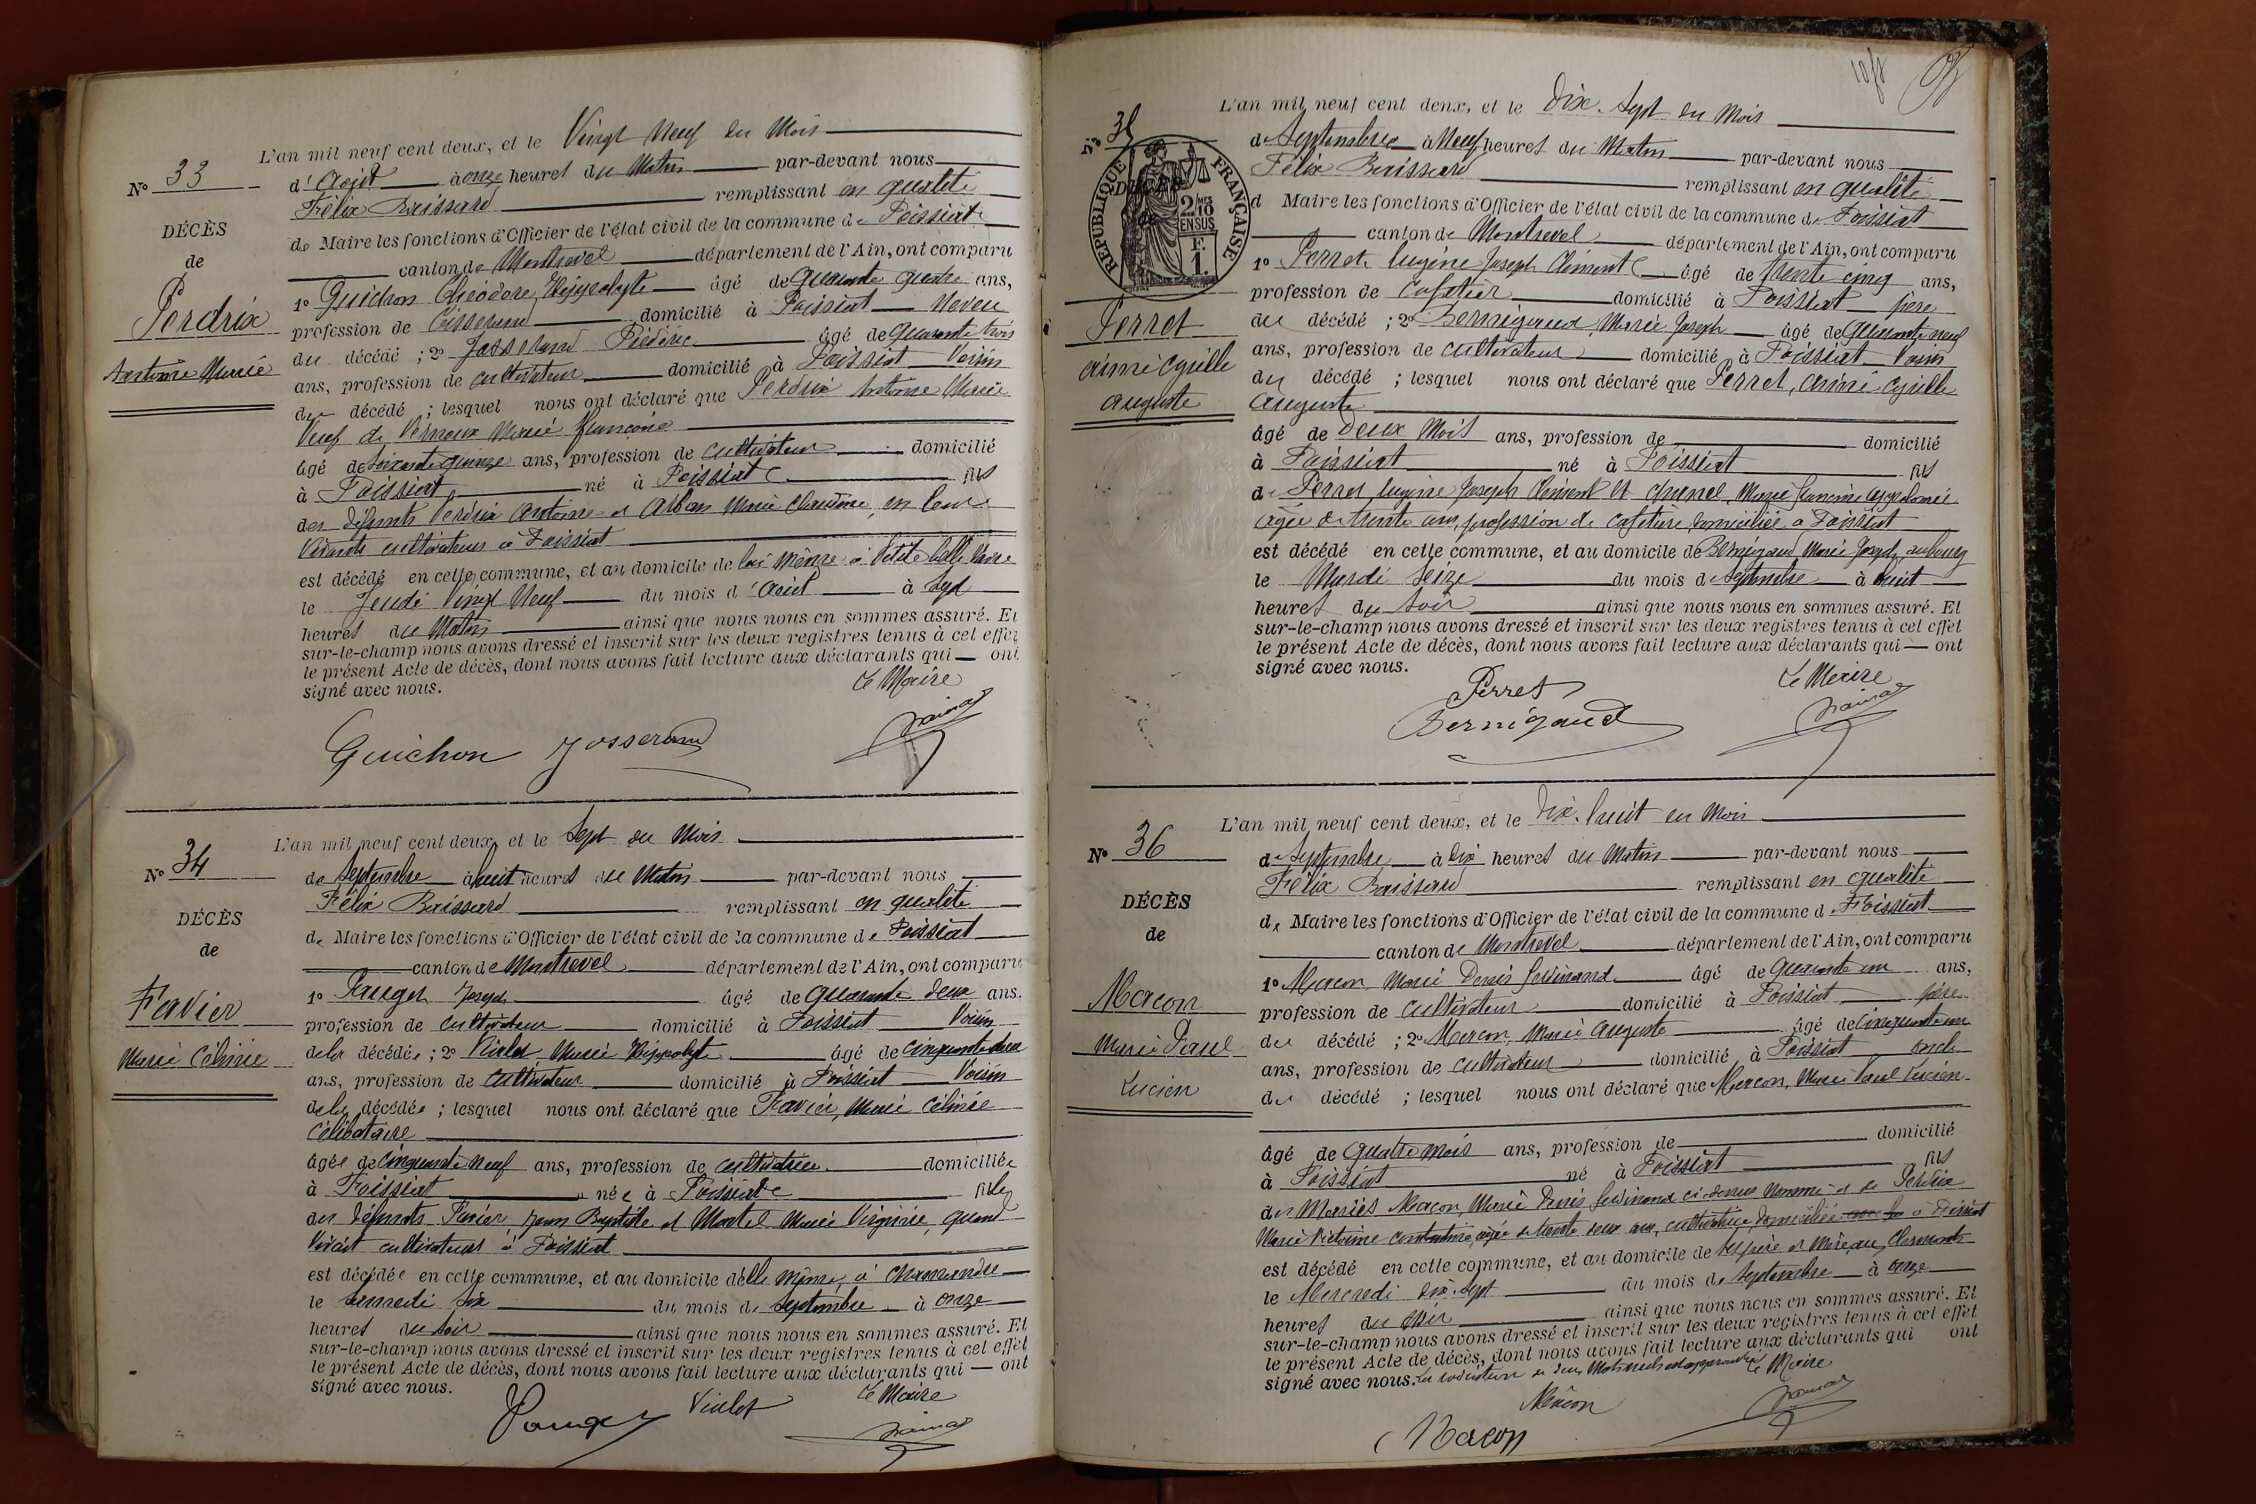 L'an mil neuf cent deux, et le Vingt Neuf du Mois
N° 33
d'Août à onze heures du Matin par-devant nous
Félix remplissant en qualité
DÉCÈS
de Maire les fonctions d'Officier de l'état civil de la commune de Foissiat
de
canton de Montrevel département de l'Ain, ont comparu
Perdrix
1° Guichon Théodore, Hippolyte âgé de quarante quatre ans,
profession de Tisserand domicilié à Foissiat Neveu
Antoine Marie
du décédé ; 2° Josserand Frédéric âgé de quarante trois
ans, profession de cultivateur domicilié à Foissiat Voisin
du décédé ; lesquel nous ont déclaré que Perdrix Antoine Marie
Veuf de Marie Françoise
âgé de soixante quinze ans, profession de cultivateur domicilié
à Foissiat né à Foissiat fils
des défunts Perdrix Antoine et Alban Marie Claudine, en leurs
Vivants cultivateurs à Foissiat
est décédé en cette commune, et au domicile de lui même à Petite
le Jeudi Vingt Neuf du mois d'Août à Sept
heures du Matin ainsi que nous nous en sommes assuré. Et
sur-le-champ nous avons dressé et inscrit sur les deux registres tenus à cet effet
le présent Acte de décès, dont nous avons fait lecture aux déclarants qui — ont
signé avec nous.
Le Maire
Guichon Josserand
L'an mil neuf cent deux, et le Sept du Mois
N° 34
de Septembre à huit heures du Matin par-devant nous
Félix remplissant en qualité
DÉCÈS
de Maire les fonctions d'Officier de l'état civil de la commune de Foissiat
de
canton de Montrevel département de l'Ain, ont comparu
Favier
1° Joseph âgé de quarante deux ans.
profession de cultivateur domicilié à Foissiat Voisin
Marie Célinie
de la décédée ; 2° Violet Marie Hippolyte âgé de cinquante deux
ans, profession de cultivateur domicilié à Foissiat Voisin
de la décédée ; lesquel nous ont déclaré que Favier, Marie Célinie
Célibataire
âgée de cinquante neuf ans, profession de cultivatrice domiciliée
à Foissiat née à Foissiat fille
des défunts Favier, Jean Baptiste et Montel Marie Virginie, quand
Vivait cultivateurs à Foissiat
est décédée en cette commune, et au domicile d'elle même, à Chamandre
le Samedi Six du mois de Septembre à onze
heures du soir ainsi que nous nous en sommes assuré. Et
sur-le-champ nous avons dressé et inscrit sur les deux registres tenus à cet effet
le présent Acte de décès, dont nous avons fait lecture aux déclarants qui — ont
signé avec nous.
Le Maire
Violet
L'an mil neuf cent deux, et le Dix-Sept du Mois
N° 35
RÉPUBLIQUE FRANÇAISE
DÉCÈS
de
2/10
EN SUS
F.
1.
de Septembre à Neuf heures du Matin par-devant nous
Félix remplissant en qualité
d Maire les fonctions d'Officier de l'état civil de la commune de Foissiat
canton de Montrevel département de l'Ain, ont comparu
1° Perret Eugène Joseph Clément âgé de trente cinq ans,
profession de Cafetier domicilié à Foissiat père
Perret
du décédé ; 2° Bernigaud, Marie Joseph âgé de quarante neuf
ans, profession de cultivateur domicilié à Foissiat Voisin
aimé Cyrille
du décédé ; lesquel nous ont déclaré que Perret, aimé Cyrille
auguste
auguste
âgé de Deux Mois ans, profession de domicilié
à Foissiat né à Foissiat fils
de Perret, Eugène Joseph Clément et Marie Francine
âgée de trente ans, profession de cafetière, domiciliée à Foissiat
est décédé en cette commune, et au domicile de Bernigaud Marie Joseph, au bourg
le Mardi Seize du mois de Septembre à huit
heures du Soir ainsi que nous nous en sommes assuré. Et
sur-le-champ nous avons dressé et inscrit sur les deux registres tenus à cet effet
le présent Acte de décès, dont nous avons fait lecture aux déclarants qui — ont
signé avec nous.
Le Maire
Perret
Bernigaud
L'an mil neuf cent deux, et le Dix-huit du Mois
N° 36
de Septembre à Dix heures du Matin par-devant nous
Félix remplissant en qualité
DÉCÈS
de Maire les fonctions d'Officier de l'état civil de la commune d Foissiat
de
canton de Montrevel département de l'Ain, ont comparu
Macon
1° Macon Marie Denis Ferdinand âgé de quarante un ans,
profession de cultivateur domicilié à Foissiat père
Marie Paul
du décédé ; 2° Macon, Marie Auguste âgé de cinquante un
ans, profession de cultivateur domicilié à Foissiat oncle
Lucien
du décédé ; lesquel nous ont déclaré que Macon, Marie Paul Lucien
âgé de quatre mois ans, profession de domicilié
à Foissiat né à Foissiat fils
des Mariés Macon, Marie Denis Ferdinand ci-dessus nommé et de Perdrix
Marie Victorine âgée de trente deux ans, cultivatrice domiciliée à Foissiat
est décédé en cette commune, et au domicile de ses père et mère, au
le Mercredi dix-Sept du mois de Septembre à onze
heures du soir ainsi que nous nous en sommes assuré. Et
sur-le-champ nous avons dressé et inscrit sur les deux registres tenus à cet effet
le présent Acte de décès, dont nous avons fait lecture aux déclarants qui ont
signé avec nous.
Le Maire
Macon
Macon